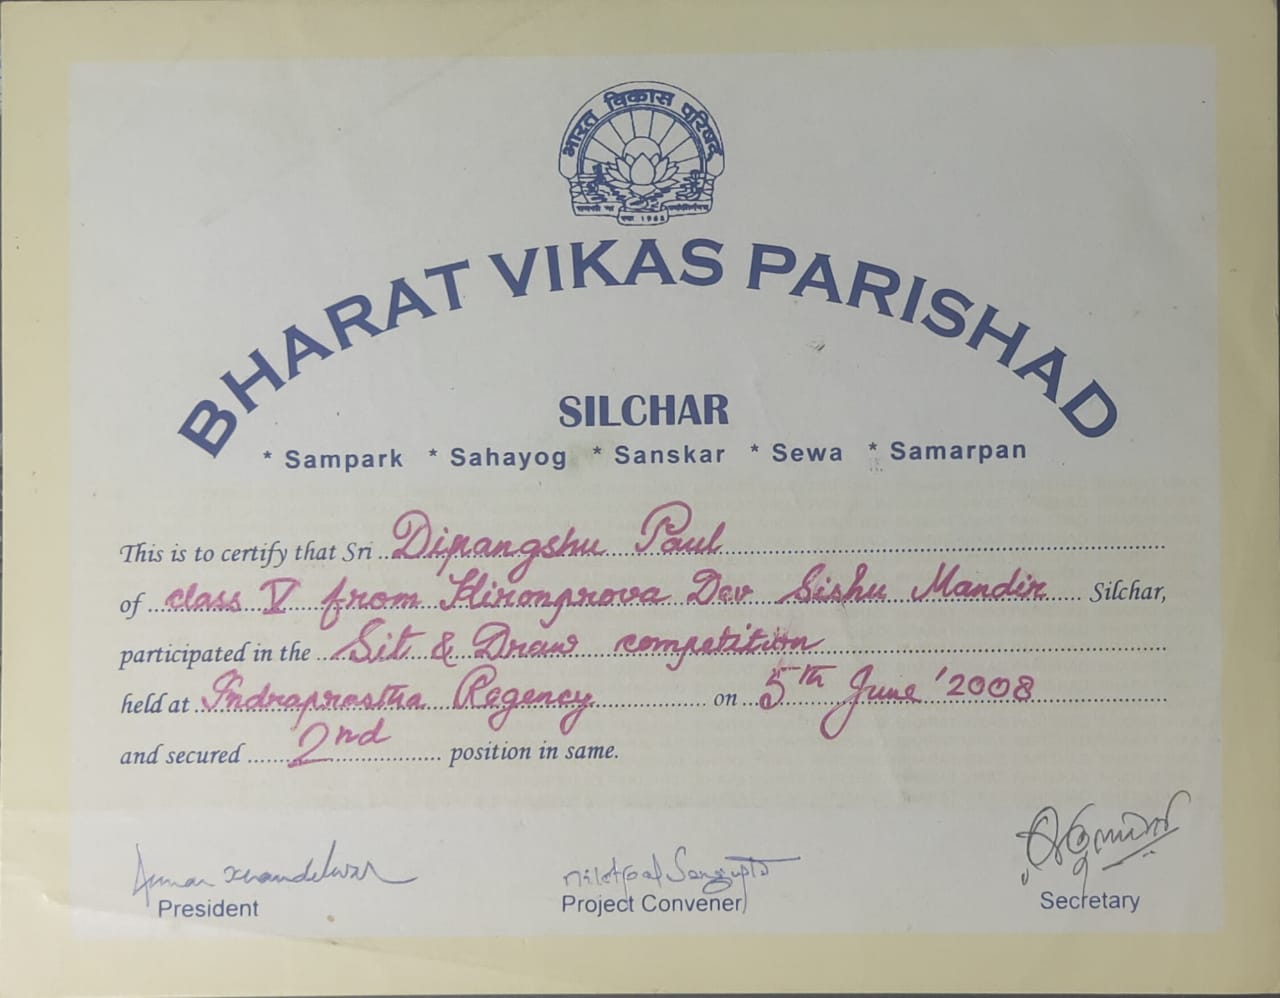 भारत विकास परिषद्
BHARAT VIKAS PARISHAD
SILCHAR
* Sampark * Sahayog * Sanskar * Sewa * Samarpan
This is to certify that Sri Dipangshu Paul
of class V from Hironprova Dev Sishu Mandir Silchar,
participated in the Sit & Draw competition
held at Indraprastha Regency on 5th June '2008
and secured 2nd position in same.
President
Project Convener
Secretary